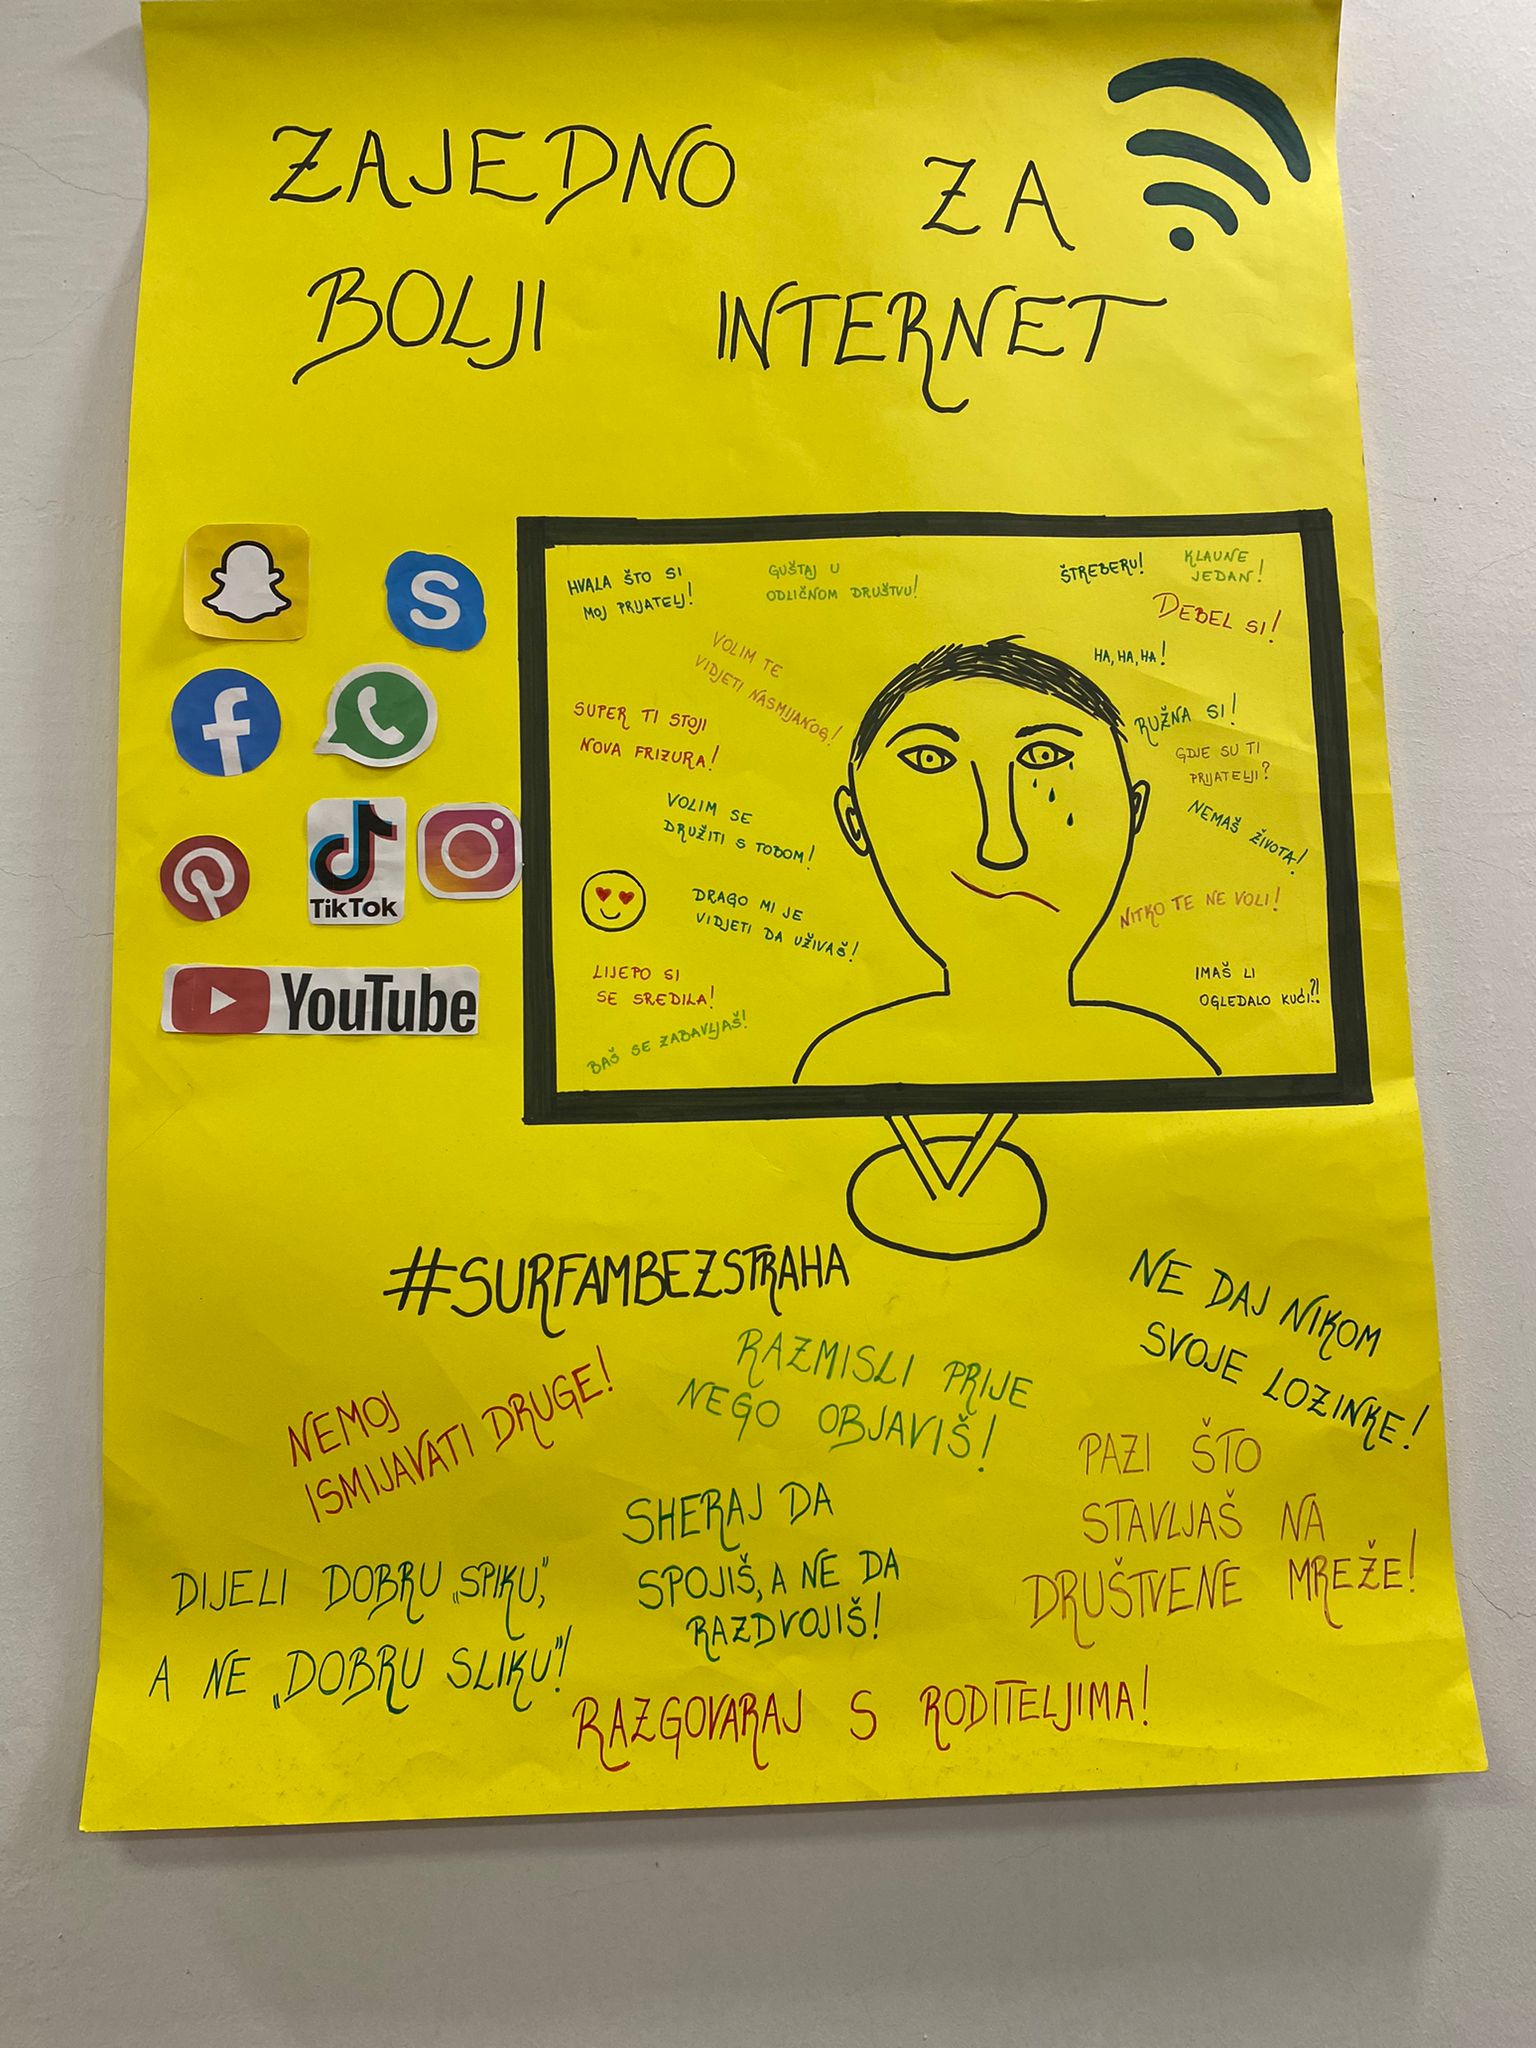 ZAJEDNO ZA
BOLJI INTERNET
S
f
TikTok
YouTube
HVALA ŠTO SI
MOJ PRIJATELJ!
GUŠTAJ U
ODLIČNOM DRUŠTVU!
VOLIM TE
VIDJETI NASMIJANOG!
SUPER TI STOJI
NOVA FRIZURA!
VOLIM SE
DRUŽITI S TOBOM!
DRAGO MI JE
VIDJETI DA UŽIVAŠ!
LIJEPO SI
SE SREDILA!
BAŠ SE ZABAVLJAŠ!
ŠTREBERU!
KLAUNE
JEDAN!
DEBEL SI!
HA, HA, HA!
RUŽNA SI!
GDJE SU TI
PRIJATELJI?
NEMAŠ ŽIVOTA!
NITKO TE NE VOLI!
IMAŠ LI
OGLEDALO KUĆI?!
#SURFAMBEZSTRAHA
NE DAJ NIKOM
SVOJE LOZINKE!
NEMOJ
ISMIJAVATI DRUGE!
RAZMISLI PRIJE
NEGO OBJAVIŠ!
PAZI ŠTO
STAVLJAŠ NA
DRUŠTVENE MREŽE!
SHERAJ DA
SPOJIŠ, A NE DA
RAZDVOJIŠ!
DIJELI DOBRU „SPIKU”,
A NE „DOBRU SLIKU”!
RAZGOVARAJ S RODITELJIMA!